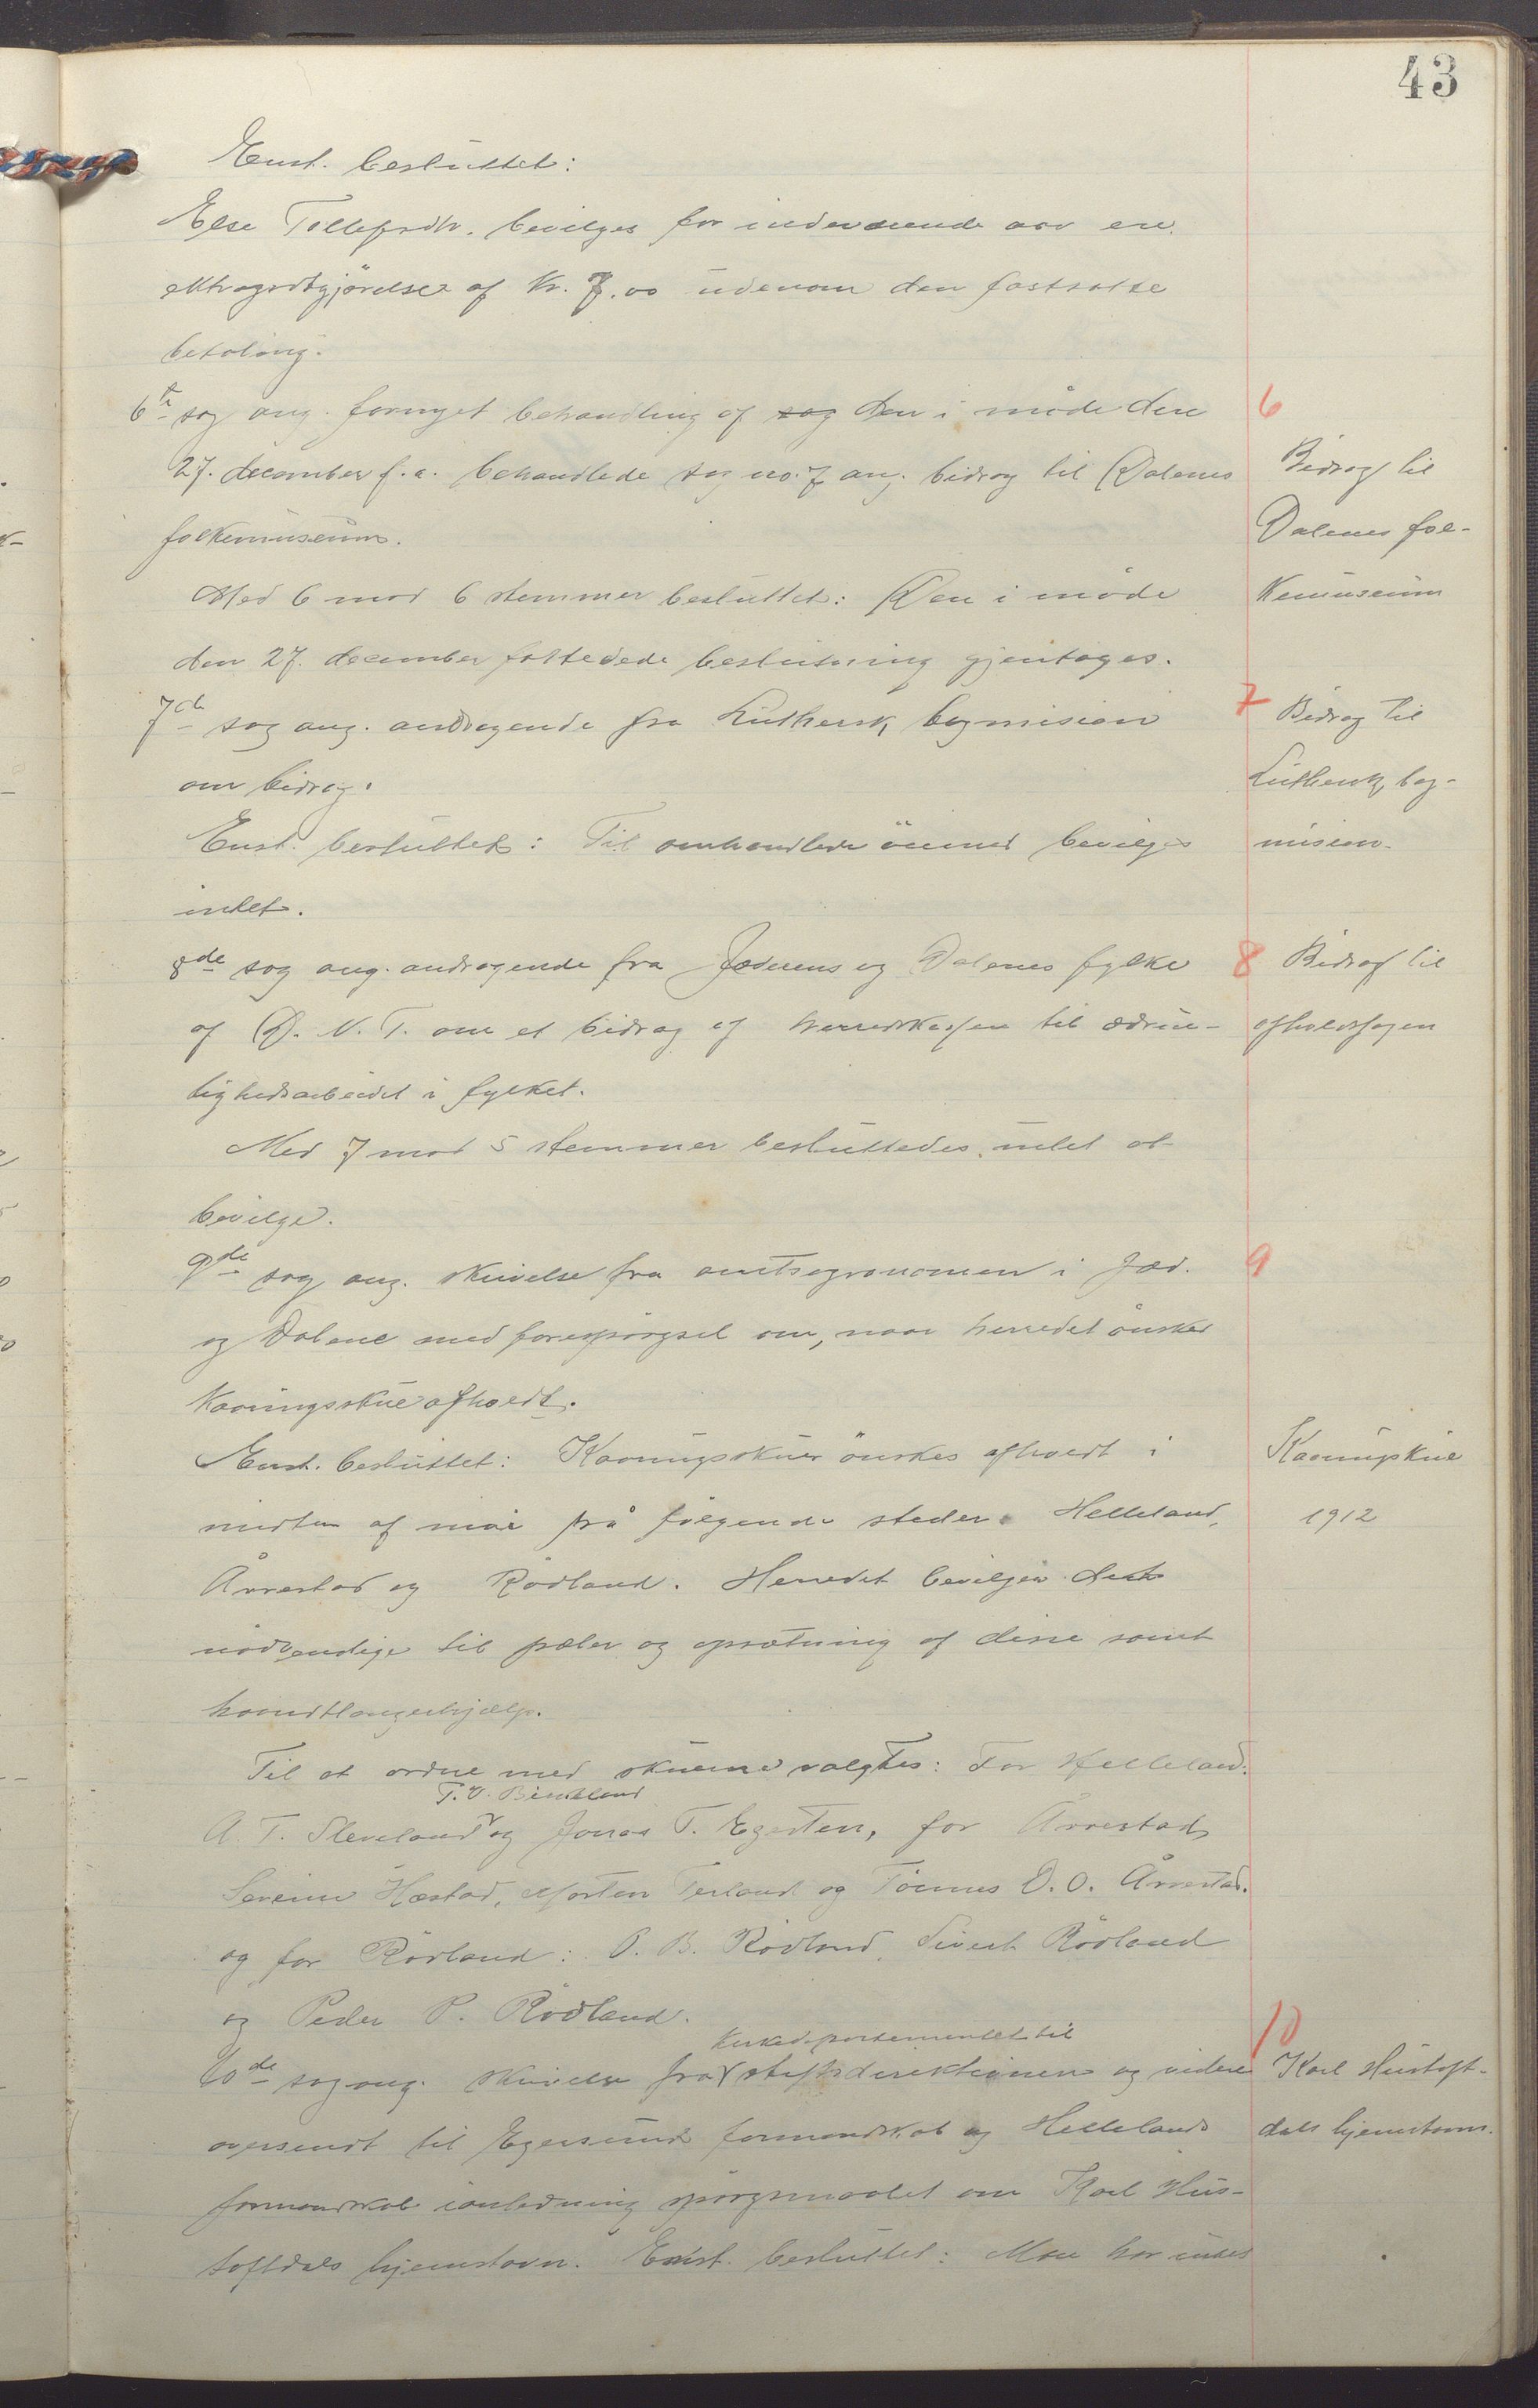 43
Enst. besluttet:
Else Tollefsdtr. bevilges for indeværende aar en
ekstragodtgjørelse af kr. 7.00 udenom den fastsatte
betaling.
6te sag ang. fornyet behandling af sag den i møde den
27. december f.a. behandlede sag no. 7 ang. bidrag til Dalenes
folkemuseum.
Med 6 mod 6 stemmer besluttet: Den i møde
den 27. december fattedede beslutning gjentages.
7de sag ang. andragende fra Luthersk bymision
om bidrag.
Enst. besluttet: Til omhandlede øiemed bevilges
intet.
8de sag ang. andragende fra Jæderens og Dalenes fylke
af D. N. T. om et bidrag af herredskassen til ædrue-
lighedsarbeidet i fylket.
Med 7 mod 5 stemmer besluttedes intet at
bevilge.
9de sag ang. skrivelse fra amtsagronomen i Jæd.
og Dalene med forespørgsel om, naar herredet ønsker
kaaringsskue afholdt.
Enst. besluttet: Kaaringsskuer ønskes afholdt i
midten af mai på følgende steder: Helleland,
Årrestad og Rødland. Herredet bevilger det
nødvendige til pæler og opsætning af disse samt
haandtlangerhjælp.
Til at ordne med skuerne valgtes: For Helleland:
T. V. Birkeland
A. T. Sleveland og Jonas T. Egesten, for Årrestad
Severin Hæstad, Morten Terland og Tønnes O. O. Årrestad.
og for Rødland: O. B. Rødland, Sivert Rødland
og Peder P. Rødland.
Kirkedepartementet til
10de sag ang. skrivelse fra stiftsdirektionen og videre
oversendt til Egersund formandskab og Hellelands
formandskab ianledning spørgsmaalet om Karl Hus-
toftdals hjemstavn. Enst. besluttet: Man har intet
6
Bidrag til
Dalenes fol-
kemuseum
7 Bidrag til
Luthersk by-
mision.
8 Bidrag til
afholdssagen
9
Kaaringskue
1912
10
Karl Hustoft-
dals hjemstavn.